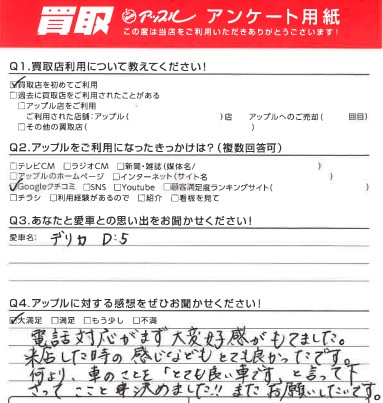 買取 アップル アンケート用紙
この度は当店をご利用いただきありがとうございます!
Q1.買取店利用について教えてください!
☑買取店を初めてご利用
□過去に買取店をご利用されたことがある
□アップル店をご利用
ご利用された店舗:アップル( )店 アップルへのご売却( 回目)
□その他の買取店( )
Q2.アップルをご利用になったきっかけは?(複数回答可)
□テレビCM □ラジオCM □新聞・雑誌(媒体名/ )
□アップルのホームページ □インターネット(サイト名 )
☑Googleクチコミ □SNS □Youtube □顧客満足度ランキングサイト( )
□チラシ □利用経験があるので □紹介 □看板を見て
Q3.あなたと愛車との思い出をお聞かせください!
愛車名: デリカ D:5
Q4.アップルに対する感想をぜひお聞かせください!
☑大満足 □満足 □もう少し □不満
電話対応がまず大変好感がもてました。
来店した時の感じなどもとても良かったです。
何より、車のことを「とても良い車です」と言って下
さって ここと 決めました!! またお願いしたいです。